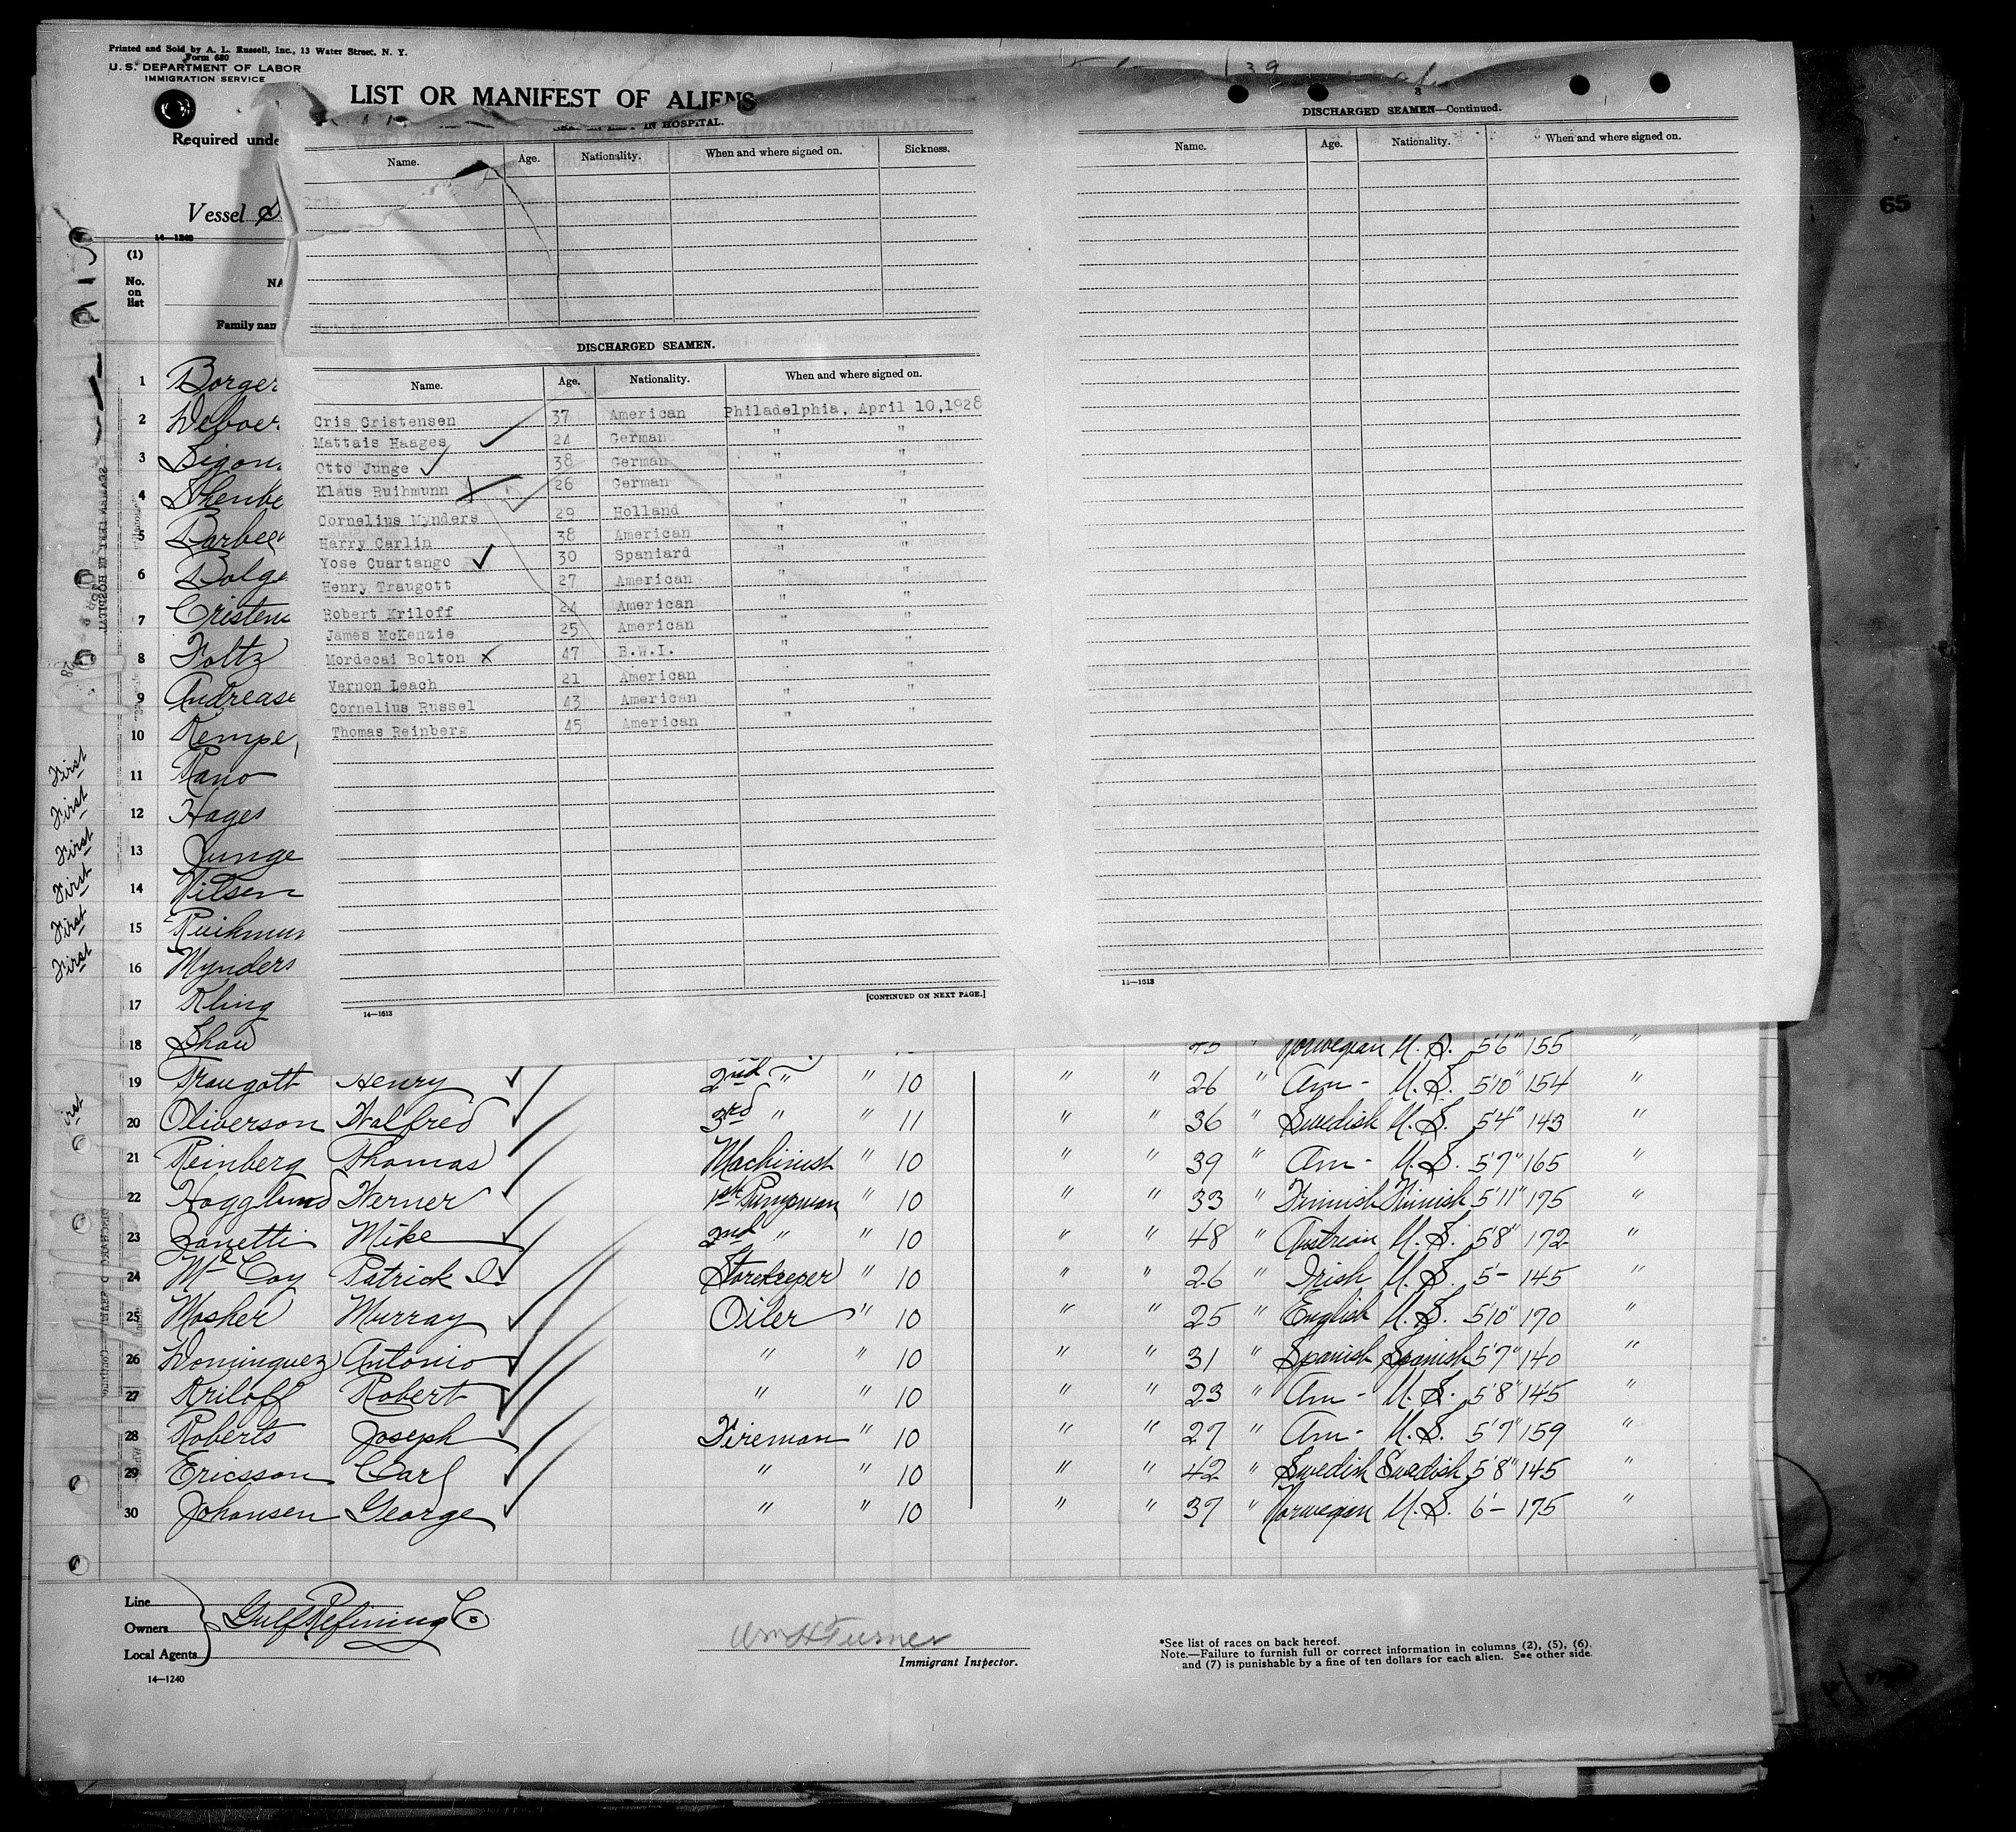 Printed and Sold by A. L. Russell, Inc., 13 Water Street, N. Y.
Form 680
U. S. DEPARTMENT OF LABOR
IMMIGRATION SERVICE
LIST OR MANIFEST OF ALIENS
Required unde
Vessel
14—1240
(1)
No. on list
Family nam
IN HOSPITAL.
Name. Age. Nationality. When and where signed on. Sickness.
DISCHARGED SEAMEN.
Name. Age. Nationality. When and where signed on.
Cris Cristensen 37 American Philadelphia, April 10, 1928
Mattais Haages 24 German " "
Otto Junge 38 German " "
Klaus Ruihmunn 26 German " "
Cornelius Mynders 29 Holland " "
Harry Carlin 38 American " "
Yose Cuartango 30 Spaniard " "
Henry Traugott 27 American " "
Robert Kriloff 24 American " "
James McKenzie 25 American " "
Mordecai Bolton x 47 B.W.I. " "
Vernon Leach 21 American " "
Cornelius Russel 43 American " "
Thomas Reinberg 45 American " "
[CONTINUED ON NEXT PAGE.]
14—1613
3
DISCHARGED SEAMEN—Continued.
Name. Age. Nationality. When and where signed on.
14—1613
65
1 Borger
2 Deboer
3 Sigon
4 Shenbe
5 Barbee
6 Bolge
7 Cristen
8 Foltz
9 Andrease
10 Kempe
First 11 Rano
First 12 Hages
First 13 Junge
First 14 Nilsen
First 15 Ruikmun
First 16 Mynders
17 Kling
18 Shaw 45 " Norwegian U. S. 5'6" 155 "
19 Traugott Henry 2nd " " 10 " " 26 " Am - U. S. 5'10" 154 "
irst 20 Oliverson Halfred 3rd " " 11 " " 36 " Swedish U. S. 5'4" 143 "
21 Reinberg Thomas Machinist " 10 " " 39 " Am - U. S. 5'7" 165 "
22 Hogglund Werner 1st Pumpman " 10 " " 33 " Finnish Finnish 5'11" 175 "
23 Zanetti Mike 2nd " " 10 " " 48 " Austrian U. S. 5'8" 172 "
24 McCoy Patrick J. Storekeeper " 10 " " 26 " Irish U. S. 5- 145 "
25 Mosher Murray Oiler " 10 " " 25 " English U. S. 5'10" 170 "
26 Dominguez Antonio " " 10 " " 31 " Spanish Spanish 5'7" 140 "
27 Kriloff Robert " " 10 " " 23 " Am - U. S. 5'8" 145 "
28 Roberts Joseph Fireman " 10 " " 27 " Am - U. S. 5'7" 159 "
29 Ericsson Carl " " 10 " " 42 " Swedish Swedish 5'8" 145 "
30 Johansen George " " 10 " " 37 " Norwegian U. S. 6'- 175 "
Line
Owners Gulf Refining Co
Local Agents
14—1240
Wm H Turner
Immigrant Inspector.
*See list of races on back hereof.
Note.—Failure to furnish full or correct information in columns (2), (5), (6),
and (7) is punishable by a fine of ten dollars for each alien. See other side.